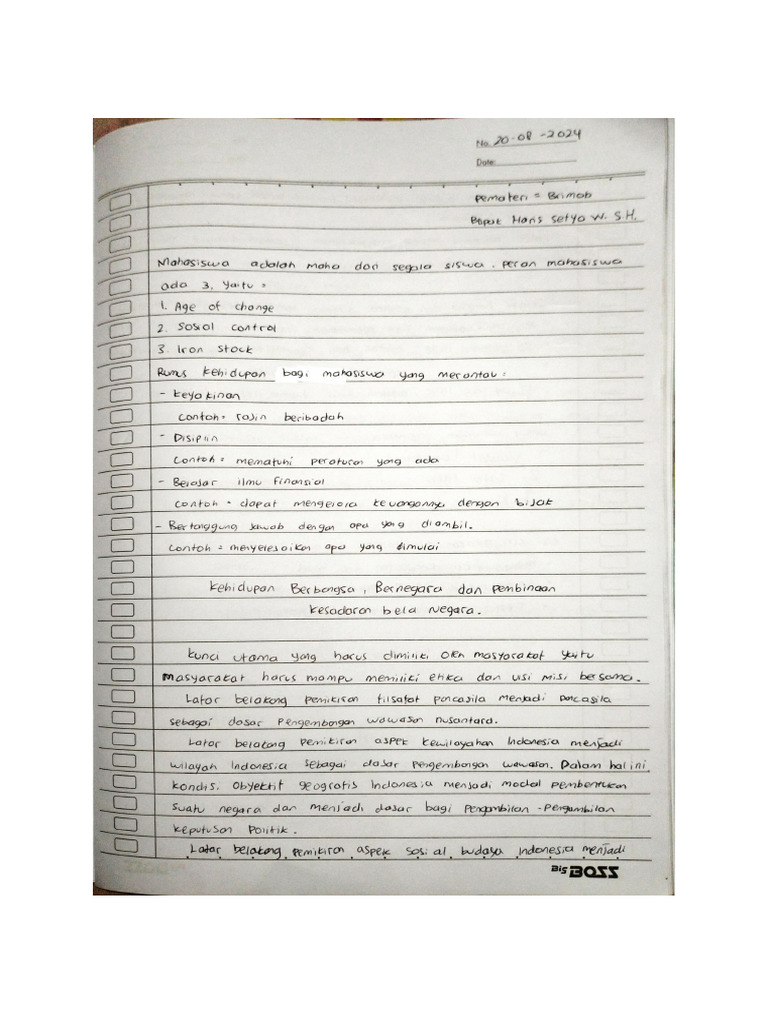 No. 20-08-2024
Date:
Pemateri = Brimob
Bapak Haris Setyo W. S.H.
Mahasiswa adalah maha dari segala siswa. peran mahasiswa
ada 3, yaitu =
1. Age of change
2. Sosial control
3. Iron Stock
Rumus kehidupan bagi mahasiswa yang merantau :
- Keyakinan
contoh = rajin beribadah
- Disiplin
contoh = mematuhi peraturan yang ada
- Belajar ilmu finansial
contoh = dapat mengelola keuangannya dengan bijak
- Bertanggung jawab dengan apa yang diambil.
contoh = menyelesaikan apa yang dimulai
Kehidupan Berbangsa, Bernegara dan pembinaan
kesadaran bela negara.
Kunci utama yang harus dimiliki oleh masyarakat yaitu
masyarakat harus mampu memiliki etika dan visi misi bersama.
Latar belakang pemikiran filsafat pancasila menjadi pancasila
sebagai dasar pengembangan wawasan nusantara.
Latar belakang pemikiran aspek kewilayahan Indonesia menjadi
wilayah Indonesia sebagai dasar pengembangan wawasan. Dalam hal ini,
kondisi obyektif geografis Indonesia menjadi modal pembentukan
suatu negara dan menjadi dasar bagi pengambilan-pengambilan
keputusan politik.
Latar belakang pemikiran aspek sosial budaya Indonesia menjadi
Big BOSS